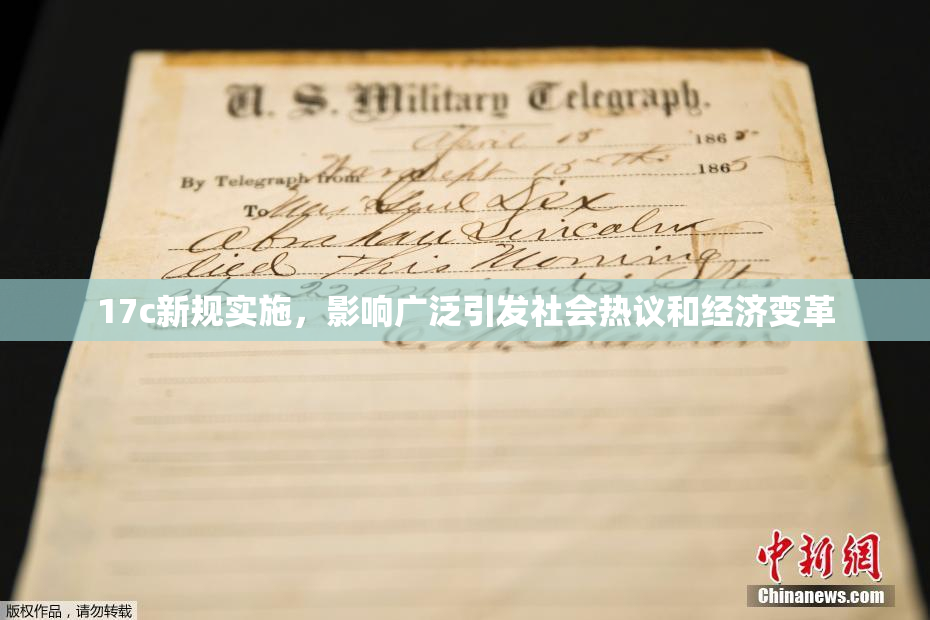 U. S. Military Telegraph.
April 15 1865
By Telegraph from War Dept 15th 1865
To Maj Genl Dix
Abraham Lincoln
died this morning
at 22 minutes after
17c新规实施，影响广泛引发社会热议和经济变革
E. M. Stanton
中新网
Chinanews.com
版权作品，请勿转载